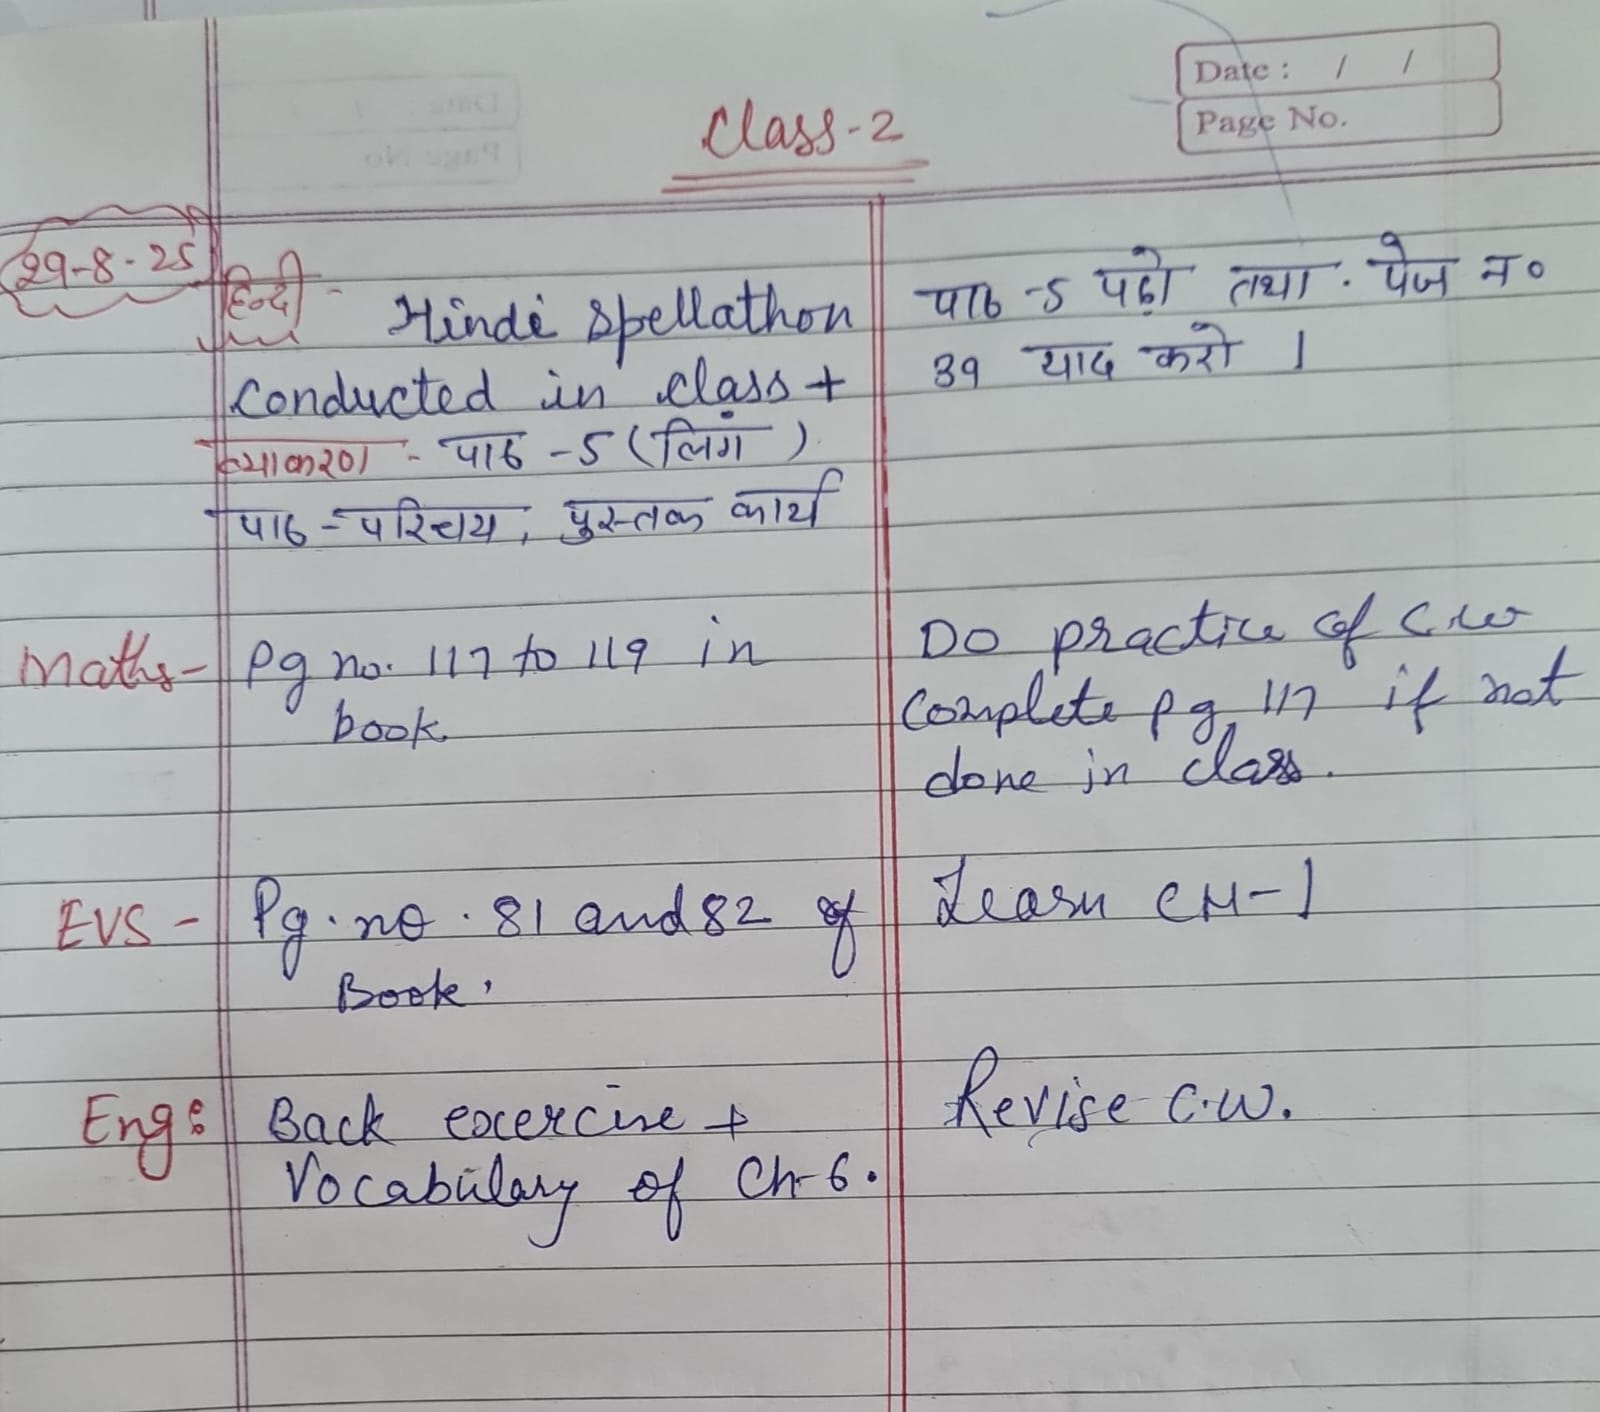 Date : / /
Page No.
Class-2
29-8-25
हिन्दी - Hindi Spellathon
conducted in class +
व्याकरण - पाठ -5 (लिंग)
पाठ - परिचय, पुस्तक कार्य
पाठ -5 पढ़ो तथा . पेज न०
39 याद करो ।
Maths- Pg no. 117 to 119 in
book
Do practice of c.w
complete pg. 117 if not
done in class.
EVS - Pg. no. 81 and 82 of
Book.
Learn CH-1
Eng: Back excercise +
Vocabulary of Ch-6.
Revise C.W.